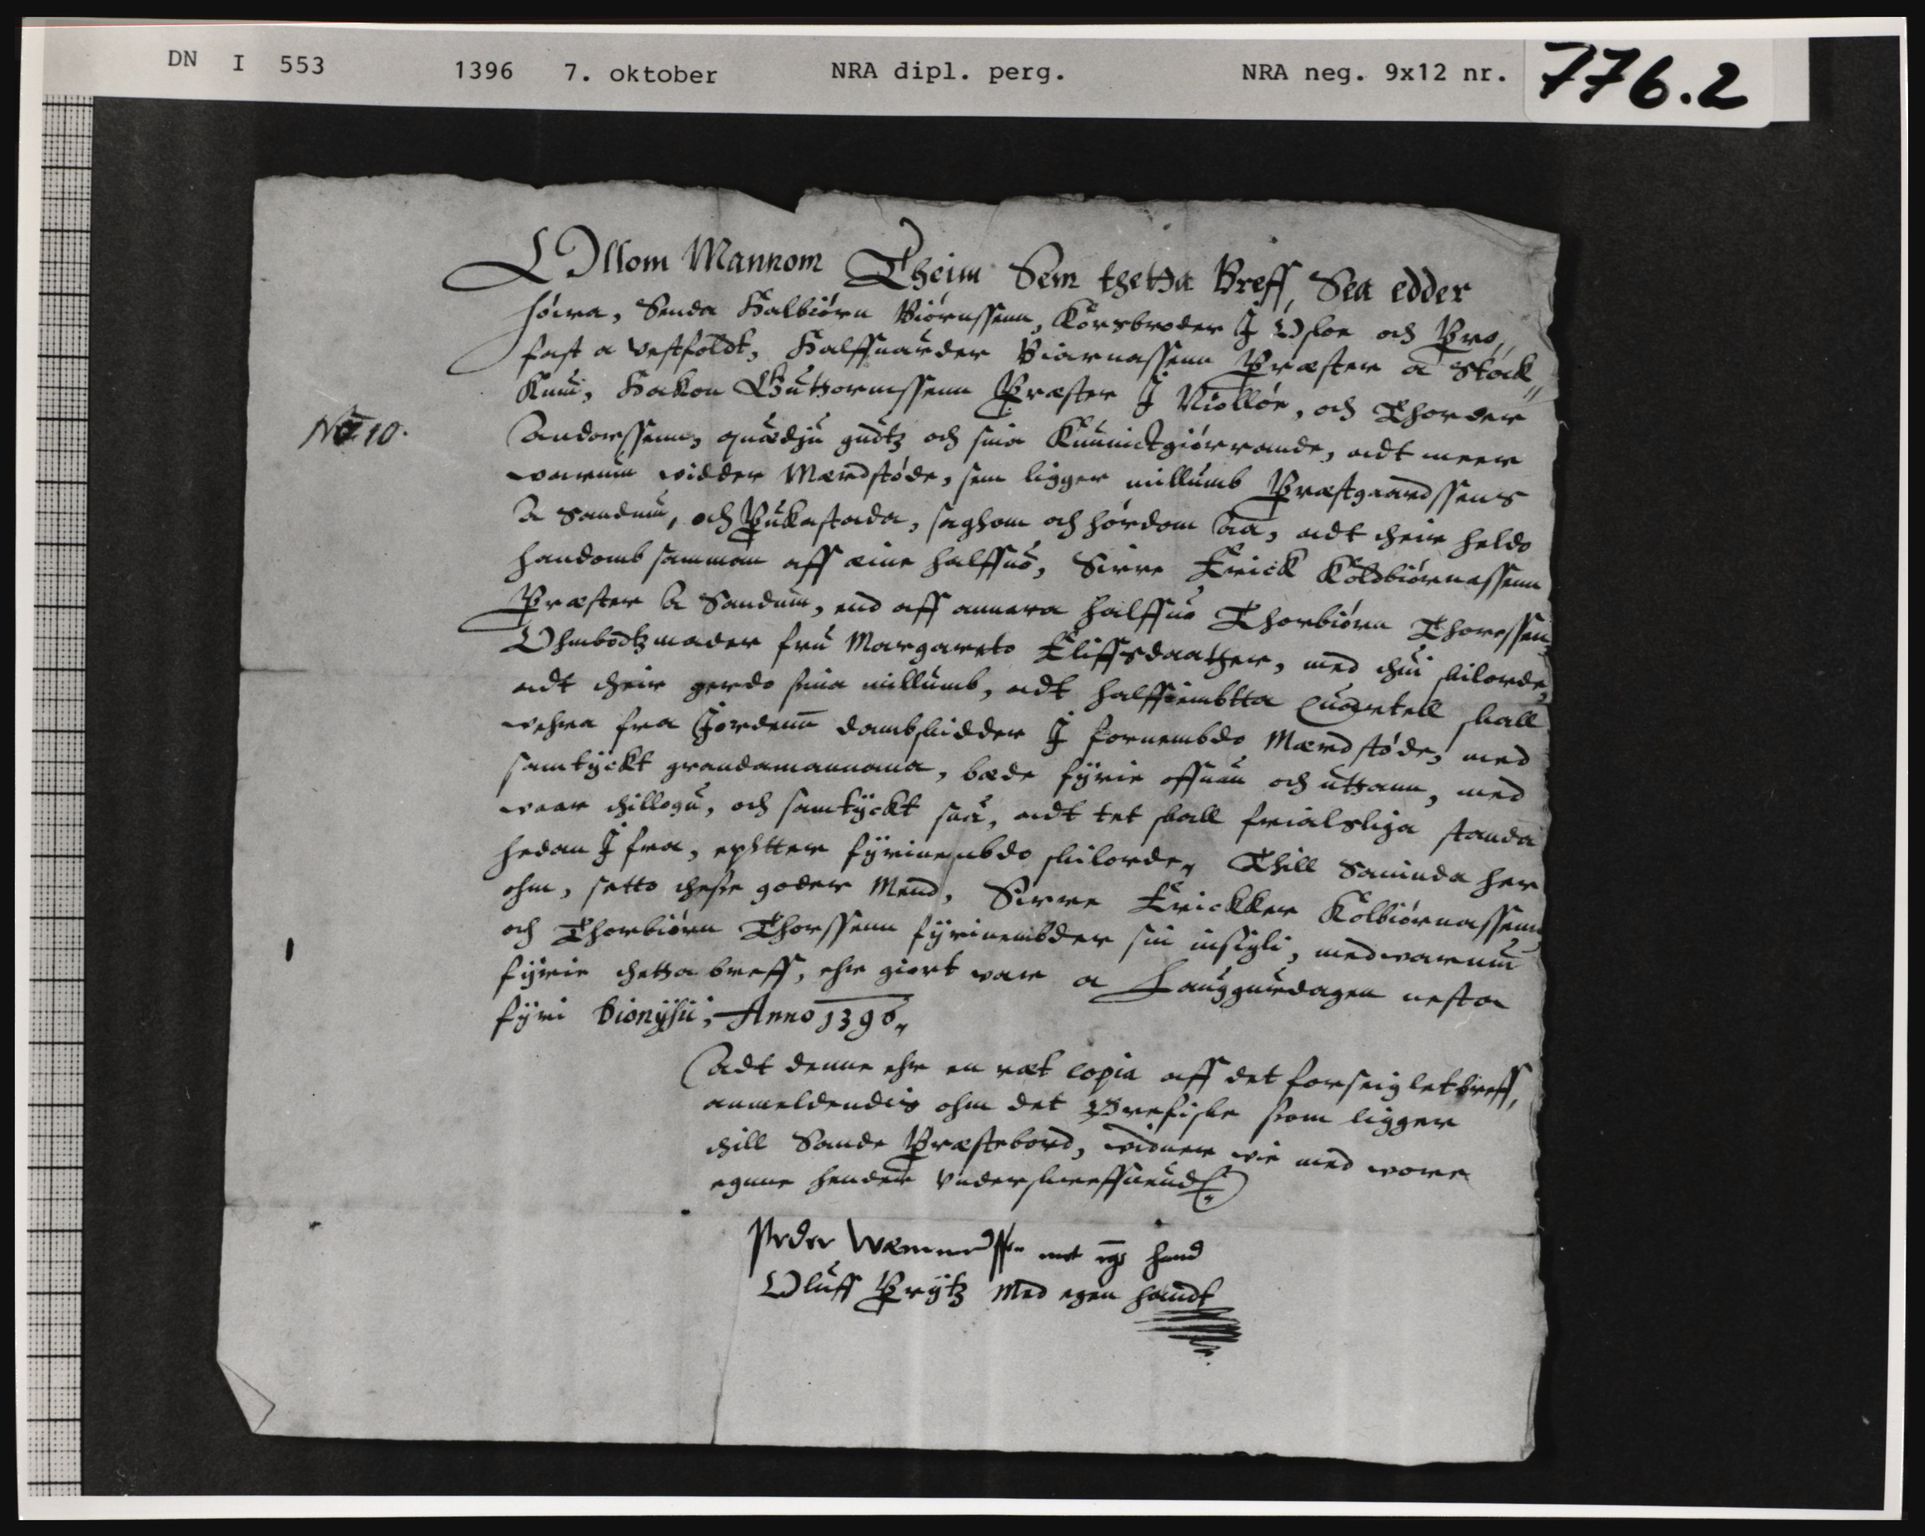 DN I 553 1396 7. oktober NRA dipl. perg. NRA neg. 9x12 nr. 776.2
Ollom Mannom Theim Sem thetta Breff, Sea edder
höira, Senda Halbiörn Biörnssenn, Korsbroder J Osloe och Pro,
fast a Vestfoldt, Halffuarder Biarnassenn Præster a Stock"
Knum, Hakon Guttormssenn Præster J Niotlöe, och Thorder
No: 10.
Andorssenn, quædju gudtz och sina Kunnictgiörrande, adt meer
warum widder Mærdstöde, sem ligger millumb Præstgaardssens
a Sandum, och Pukastada, saghom och hördom aa, adt their heldo
handomb samman aff eine halffuo, Sirre Erick Koldbiörnassenn
Præster a Sandum, end aff annara halffue Thorbiörn Thoressen,
Ohmbodtzmader fru Margareto Eliffsdaatther, med thui skilorde,
adt their gerdo sina millumb, adt halffiembtta Quartell skall
wehra fra Jordenn dambskidder J fornembdo Mærdstöde, med
samtyckt grandamannana, bæde fyrie offuan och uttann, med
waar thillogu, och samtyckt saa, adt tet skall frialsliga standa
hedan J fra, ephtter fyrinembdo skilorde, Thill Saninda her
ohm, setto thesse goder Mend, Sirre Erickker Kolbiörnassenn
och Thorbiörn Thorssenn fyrinembder sin insigli, med warum
fyrie thetta breff, ehr giort war a Lauggurdagen nesta
fyri Dionysii, Anno 1396,
Adt denne ehr en ræt Copia aff det forseiglet breff,
anmeldendis ohm det Prefiske som ligger
thill Sande Præstebord, widner wie med wore
egnne hender Underskreffuend
Peder med egen hand
Oluff Prytz Med egen handt